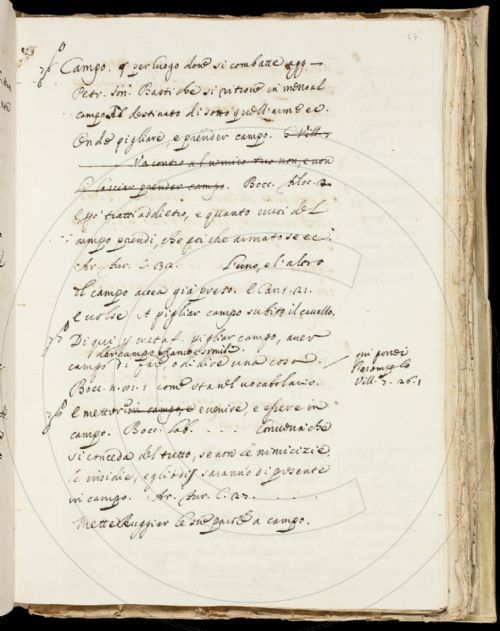 57
Campo. p per luogo doue si combatte agg —
Petr. son. Basti che si ritroue in mezo al
campo Al destinato di sotto quell'arme ec.
Onde pigliare, e prender campo. G. Vill.
Va contro al nemico tuo non, e non
li lasciar prender campo. Bocc. Filoc. 2
e po tratti addietro, e quanto vuoi del
campo prendi, che poi che armato se ec.
Ar. fur. C. L'uno, e l'altro
Il campo avea già preso. E Can. 1. 21.
e volse A pigliar campo subito il cavallo.
Di qui p metaf. pigliar campo, aver
dar campo e simili
campo di fare, o di dire una cosa.
Bocc. n. 01. 1 come sta nel vocabolario.
qui poni
l'esempio
Vill. 7. 26. 1
e metter in campo, e venire, e essere in
campo. Bocc. lab. . . . Conviene che
si conceda del tutto, se non le nimicizie,
le insidie, e gli odij saranno di presente
in campo. Ar. fur. C. 23. . . . .
Mette Ruggier le sue parole a campo.